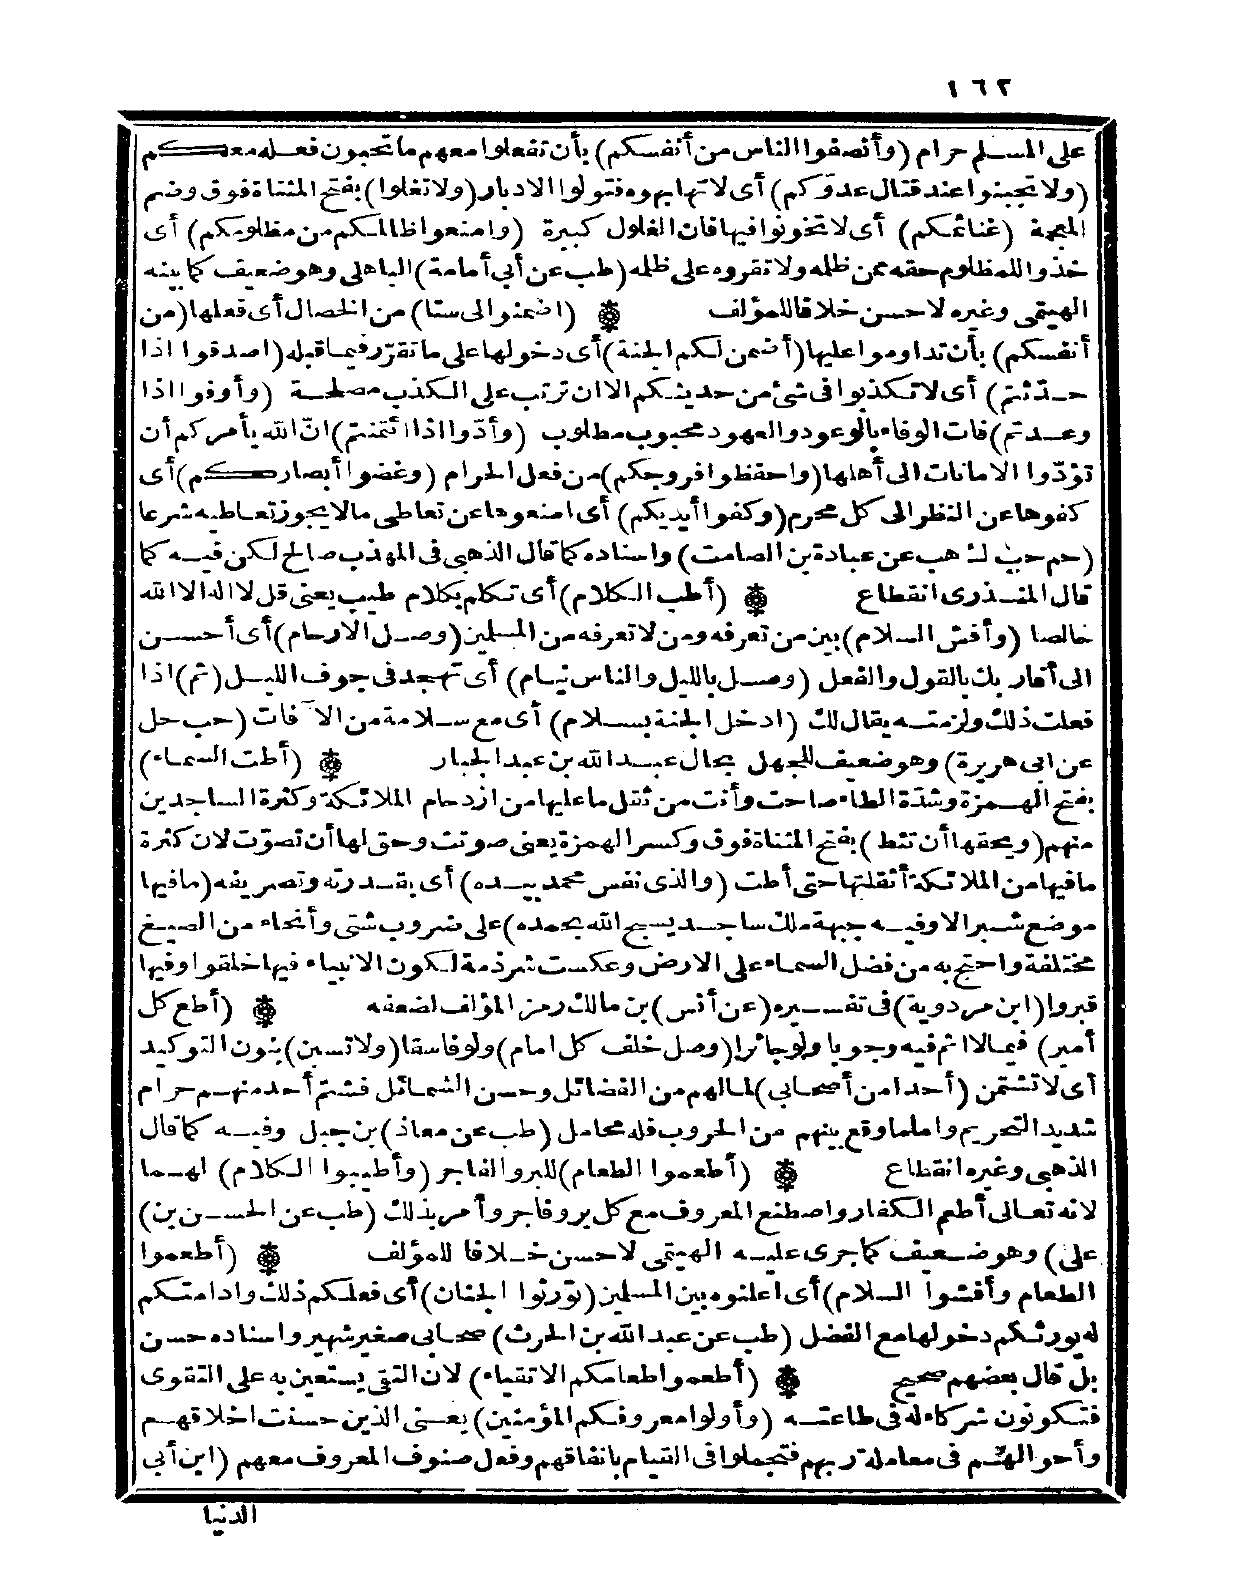 ١٦٢
على المسلم حرام (وأنصفوا الناس من أنفسكم) بأن تفعلوا معهم ما تحبون فعله معكم
(ولا تجبنوا عند قتال عدوّكم) أى لا تهابوه فتولوا الادبار (ولا تغلوا) بفتح المثناة فوق وضم
المعجمة (غنائمكم) أى لا تخونوا فيها فان الغلول كبيرة (وامنعوا ظالمكم من مظلومكم) أى
خذوا للمظلوم حقه ممن ظلمه ولا تقروه على ظلمه (طب عن أبي أمامة) الباهلى وهو ضعيف كما بينه
الهيتمى وغيره لا حسن خلافا للمؤلف ۞ (اضمنوا لى ستا) من الخصال أى فعلها (من
أنفسكم) بأن تداوموا عليها (أضمن لكم الجنة) أى دخولها على ما تقرّر فيما قبله (اصدقوا اذا
حدّثتم) أى لا تكذبوا فى شئ من حديثكم الا ان ترتب على الكذب مصلحة (وأوفوا اذا
وعدتم) فات الوفاء بالوعود والعهود محبوب مطلوب (وأدّوا اذا ائتمنتم) انّ الله يأمركم أن
تؤدّوا الامانات الى أهلها (واحفظوا فروجكم) من فعل الحرام (وغضوا أبصاركم) أى
كفوها عن النظر الى كل محرم (وكفوا أيديكم) أى امنعوها عن تعاطى ما لا يجوز تعاطيه شرعا
(حم حب ك هب عن عبادة بن الصامت) واسناده كما قال الذهبى فى المهذب صالح لكن فيه كما
قال المنذرى انقطاع ۞ (أطب الكلام) أى تكلم بكلام طيب يعنى قل لا اله الا الله
خالصا (وأفش السلام) بين من تعرفه ومن لا تعرفه من المسلمين (وصل الارحام) أى أحسن
الى أقاربك بالقول والفعل (وصل بالليل والناس نيام) أى تهجد فى جوف الليل (ثم) اذا
فعلت ذلك ولزمته يقال لك (ادخل الجنة بسلام) أى مع سلامة من الآفات (حب حل
عن ابى هريرة) وهو ضعيف للجهل بحال عبد الله بن عبد الجبار ۞ (أطت السماء)
بفتح الهمزة وشدّة الطاء صاحت وأنت من ثقل ما عليها من ازدحام الملائكة وكثرة الساجدين
منهم (ويحقها أن تئط) بفتح المثناة فوق وكسر الهمزة يعنى صوتت وحق لها أن تصوّت لان كثرة
ما فيها من الملائكة أثقلتها حتى أطت (والذى نفس محمد بيده) أى بقدرته وتصريفه (ما فيها
موضع شبر الا وفيه جبهة ملك ساجد يسبح الله بحمده) على ضروب شتى وأنحاء من الصيغ
مختلفة واحتج به من فضل السماء على الارض وعكست شرذمة لكون الانبياء فيها خلقوا وفيها
قبروا (ابن مردوية) فى تفسيره (عن أنس) بن مالك رمز المؤلف لضعفه ۞ (أطع كل
أمير) فيما لا اثم فيه وجوبا ولو جائرا (وصل خلف كل امام) ولو فاسقا (ولا تسبن) بنون التوكيد
أى لا تشتمن (أحدا من أصحابي) لما لهم من الفضائل وحسن الشمائل فشتم أحد منهم حرام
شديد التحريم وأما ما وقع بينهم من الحروب فله محامل (طب عن معاذ) بن جبل وفيه كما قال
الذهبى وغيره انقطاع ۞ (أطعموا الطعام) للبر والفاجر (وأطيبوا الكلام) لهما
لانه تعالى أطعم الكفار واصطنع المعروف مع كل بر وفاجر وأمر بذلك (طب عن الحسن بن)
على) وهو ضعيف كما جرى عليه الهيتمى لا حسن خلافا للمؤلف ۞ (أطعموا
الطعام وأفشوا السلام) أى اعلنوه بين المسلمين (تورثوا الجنان) أى فعلكم ذلك وادامتكم
له يورثكم دخولها مع الفضل (طب عن عبد الله بن الحرث) صحابى صغير شهير واسناده حسن
بل قال بعضهم صحيح ۞ (أطعموا طعامكم الاتقياء) لان التقى يستعين به على التقوى
فتكونون شركاء له فى طاعته (وأولوا معروفكم المؤمنين) يعنى الذين حسنت اخلاقهم
وأحوالهم فى معاملة ربهم فتجملوا فى القيام بانفاقهم وفعل صنوف المعروف معهم (ابن أبى
الدنيا